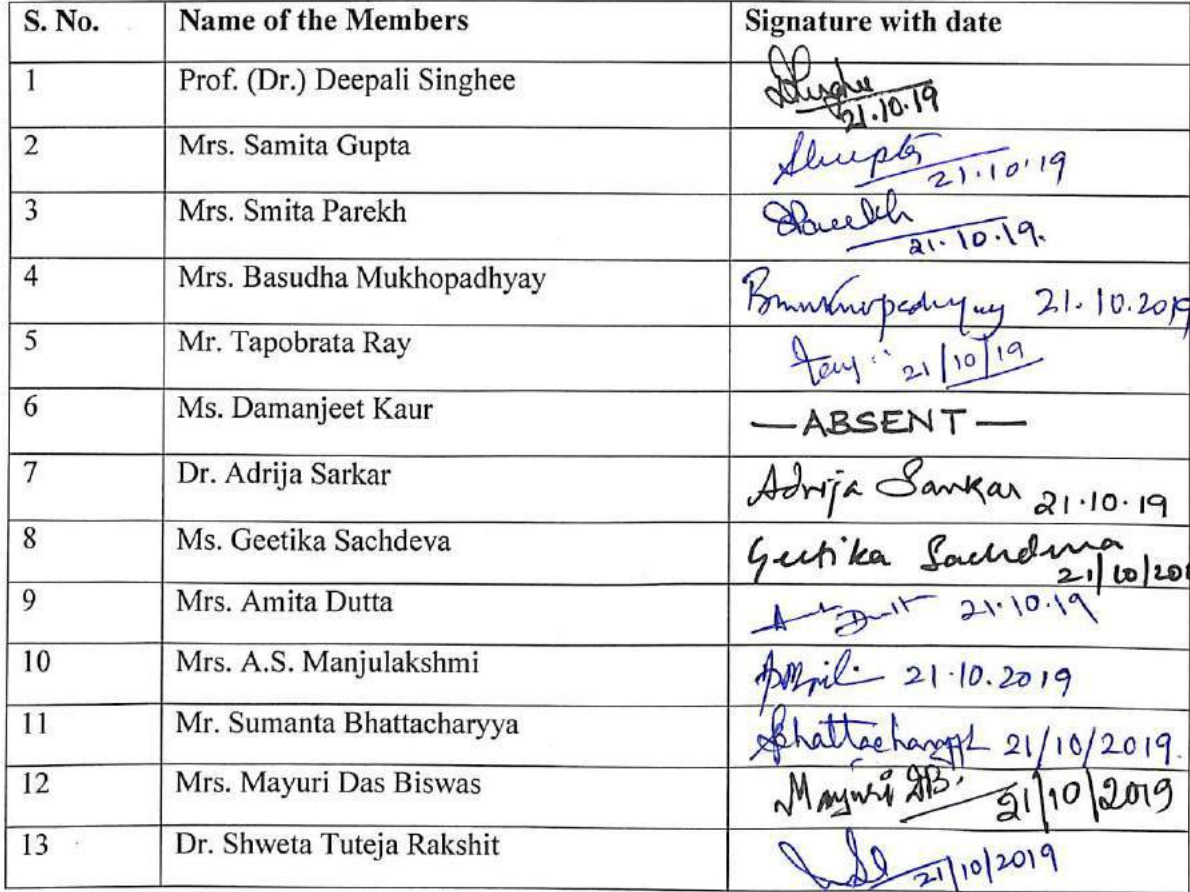 S. No. Name of the Members Signature with date
1 Prof. (Dr.) Deepali Singhee
21.10.19
2 Mrs. Samita Gupta SGupta 21.10.19
3 Mrs. Smita Parekh SParekh
21.10.19.
4 Mrs. Basudha Mukhopadhyay BMukhopadhyay 21.10.2019
5 Mr. Tapobrata Ray 21/10/19
6 Ms. Damanjeet Kaur —ABSENT—
7 Dr. Adrija Sarkar Adrija Sarkar 21.10.19
8 Ms. Geetika Sachdeva Geetika Sachdeva
21/10/201
9 Mrs. Amita Dutta 21.10.19
10 Mrs. A.S. Manjulakshmi 21.10.2019
11 Mr. Sumanta Bhattacharyya SBhattacharyya 21/10/2019.
12 Mrs. Mayuri Das Biswas Mayuri DB. 21/10/2019
13 Dr. Shweta Tuteja Rakshit 21/10/2019